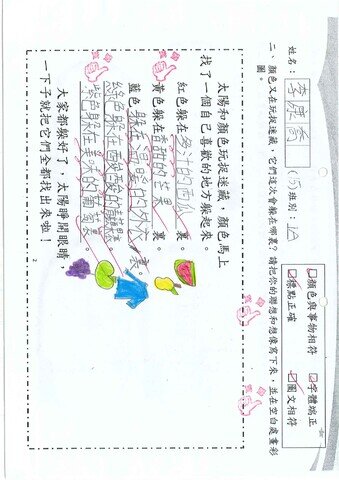 姓名：李彥喬 (15) 班別：1A
二、顏色又在玩捉迷藏，它們這次會躲在哪裏？請把你的聯想和想像寫下來，並在空白處畫彩圖。
顏色與事物相符 字體端正
標點正確 圖文相符
太陽和顏色玩捉迷藏，顏色馬上
找了一個自己喜歡的地方躲起來。
紅色躲在多汁的西瓜裏。
黃色躲在香甜的芒果裏。
藍色躲在溫暖的外衣裏。
綠色躲在酸酸的青蘋果裏。
紫色躲在美味的葡萄裏。
大家都躲好了，太陽睜開眼睛，
一下子就把它們全都找出來啦！